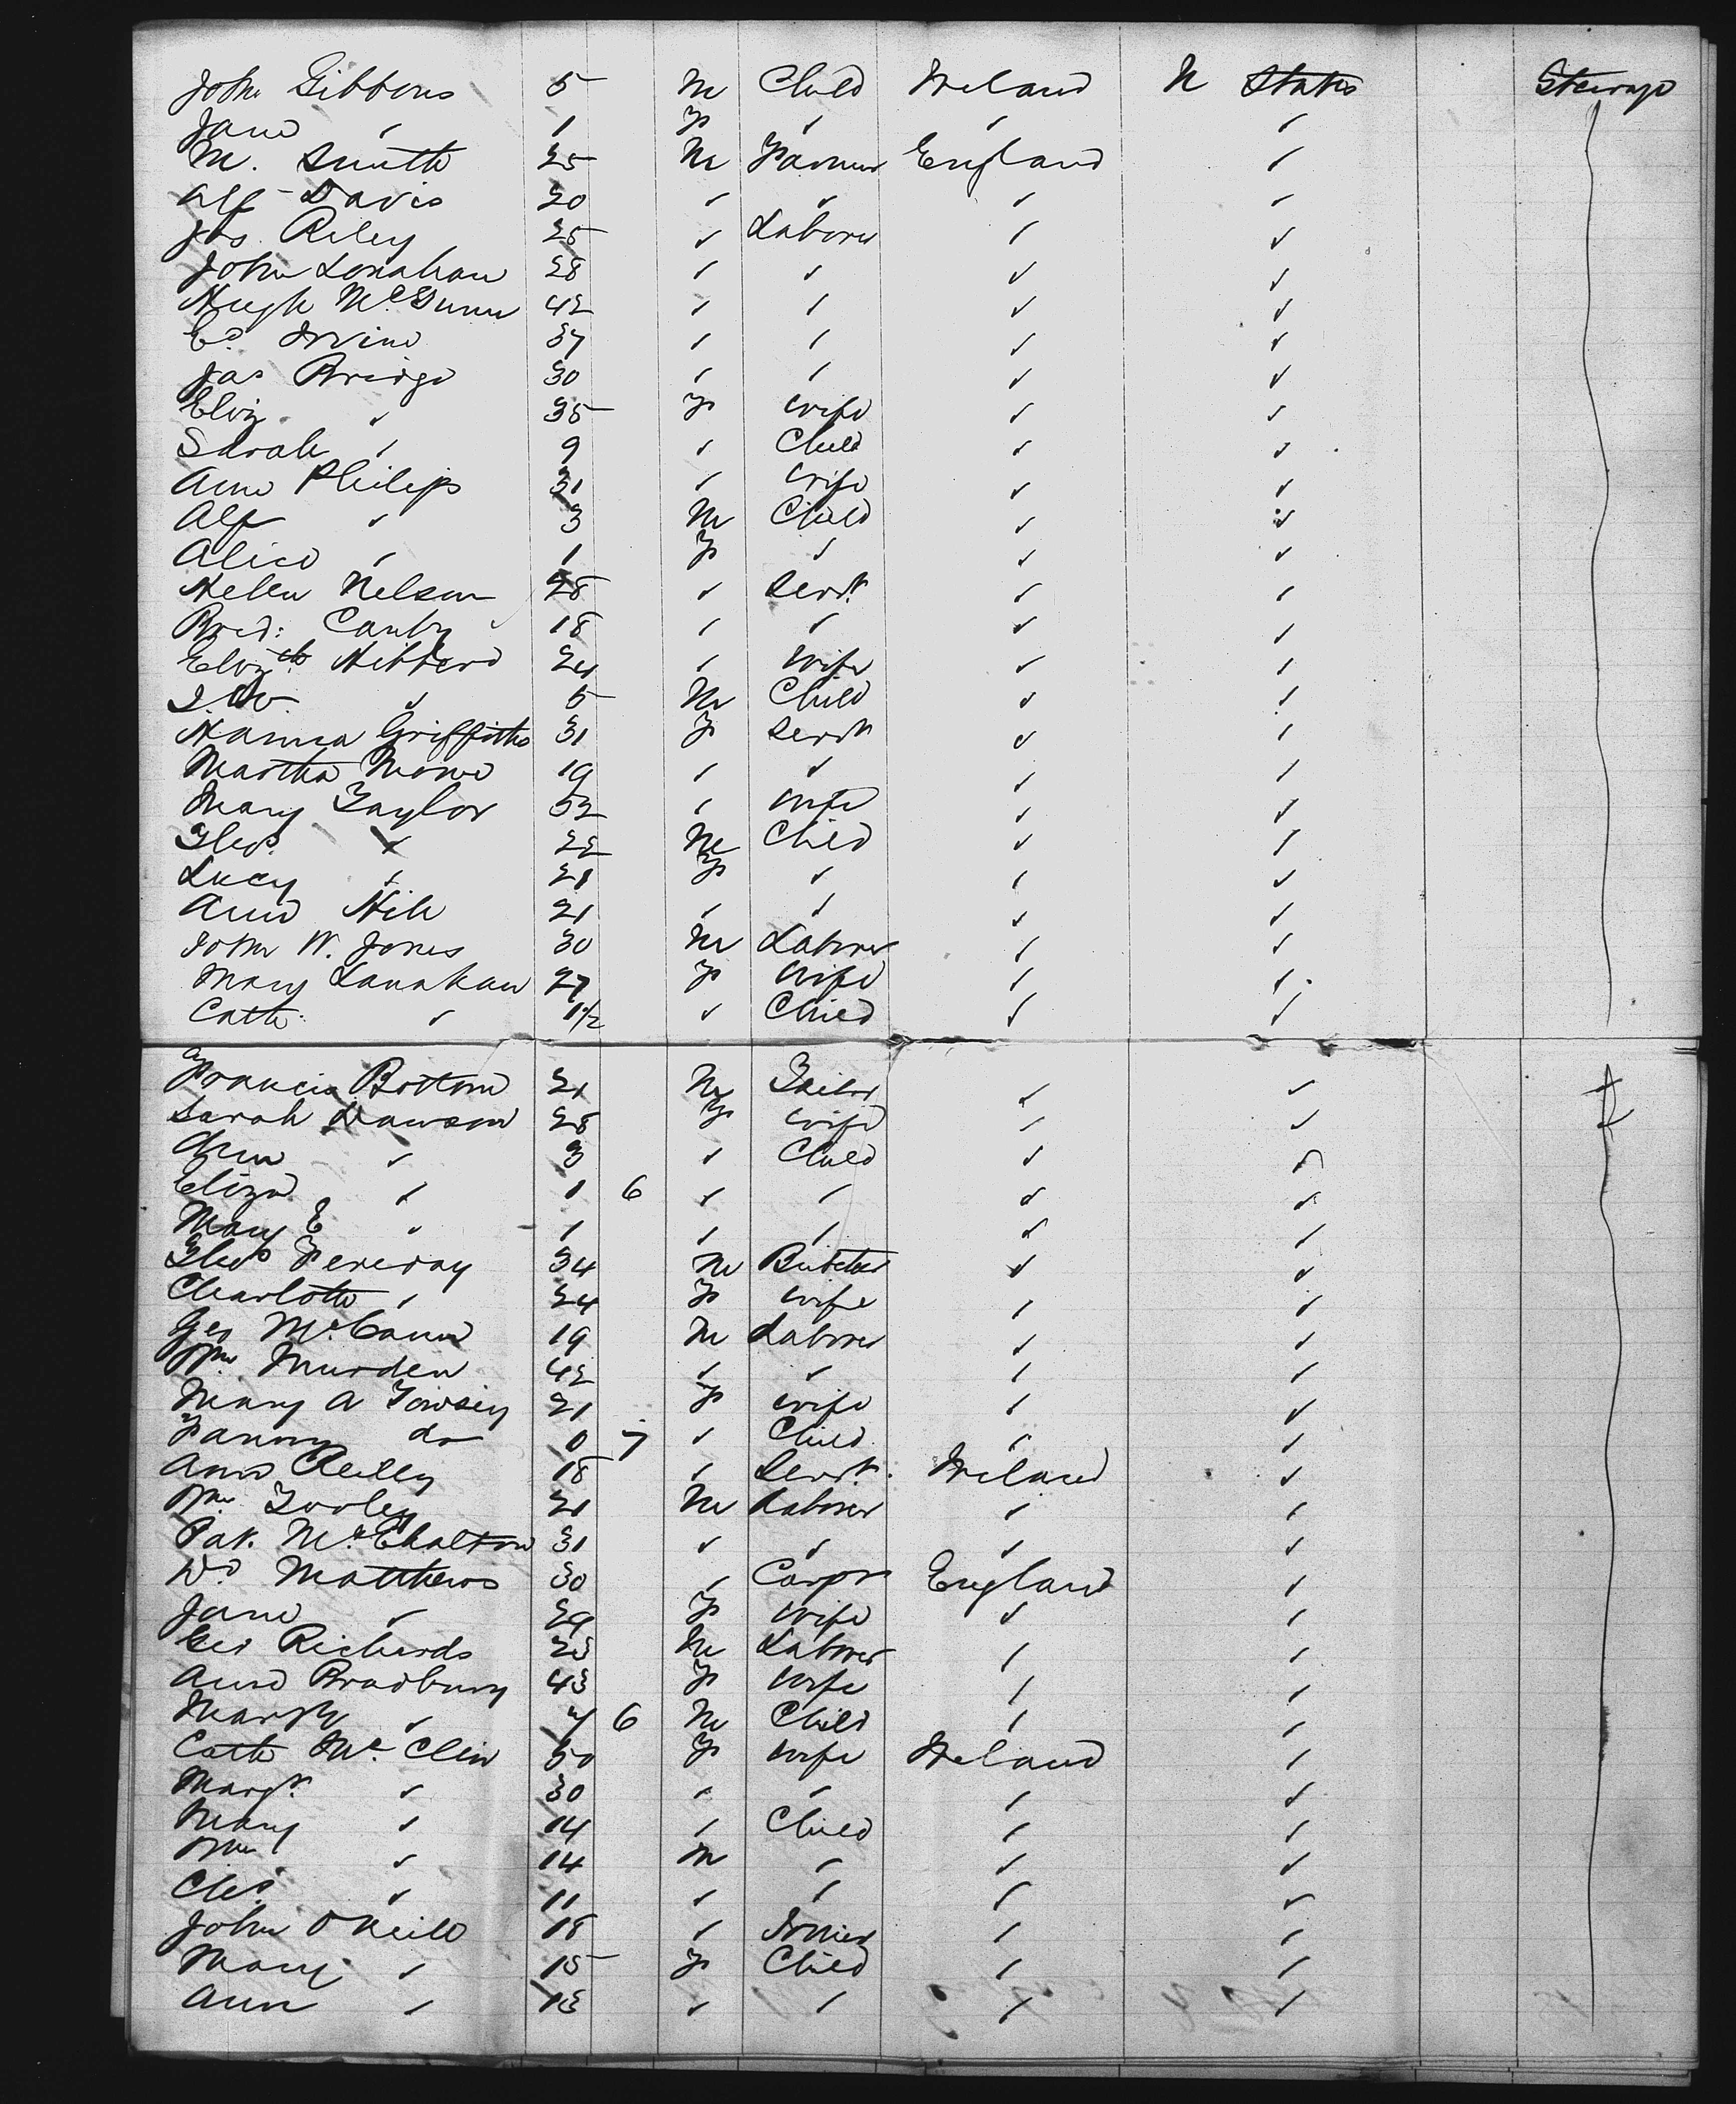 John Gibbons 5 M Child Ireland U States Steerage
Jane " 1 F " " "
M. Smith 25 M Farmer England "
Alf Davis 20 " " " "
Jas. Riley 25 " Laborer " "
John Lonahan 28 " " " "
Hugh McGunn 42 " " " "
Ed Irvine 37 " " " "
Jas Bridge 30 " " " "
Eliz " 35 F Wife " "
Sarah " 9 " Child " "
Ann Philips 31 " Wife " "
Alf " 3 M Child " "
Alice " 1 F " " "
Helen Nelson 28 " Servt. " "
Brid: Canty 18 " " " "
Elizth Hibberd 24 " Wife " "
J.W. " 5 M Child " "
Hanna Griffiths 31 F Servt " "
Martha Mowe 19 " " " "
Mary Taylor 52 " Wife " "
Thos. " 22 M Child " "
Lucy " 21 F " " "
Ann Hill 21 " " " "
John W. Jones 30 M Laborer " "
Mary Lanahan 27 F Wife " "
Cath: " 1 1/2 " Child " "
Francis Bottom 21 M Tailor " "
Sarah Dawson 28 F Wife " "
Ann " 3 " Child " "
Eliza " 1 6 " " " "
Mary E " 1 " " " "
Thos Fereday 34 M Butcher " "
Charlotte " 24 F Wife " "
Geo McCann 19 M Laborer " "
Wm. Murden 42 " " " "
Mary A Towsey 21 F Wife " "
Fanny do 0 7 " Child " "
Ann Reilly 18 " Servt. Ireland "
Wm. Tooley 21 M Laborer " "
Pat. McEhalton 31 " " " "
Wd Matthews 30 " Carpr England "
Jane " 29 F Wife " "
Geo Richards 23 M Laborer " "
Ann Bradbury 43 F Wife " "
Mark " 4 6 M Child " "
Cath Mc Clin 50 F Wife Ireland "
Margt. " 30 " " " "
Mary " 14 " Child " "
Wm " 14 M " " "
Chs. " 11 " " " "
John O'Neill 18 " Joiner " "
Mary " 15 F Child " "
Ann " 13 " " " "